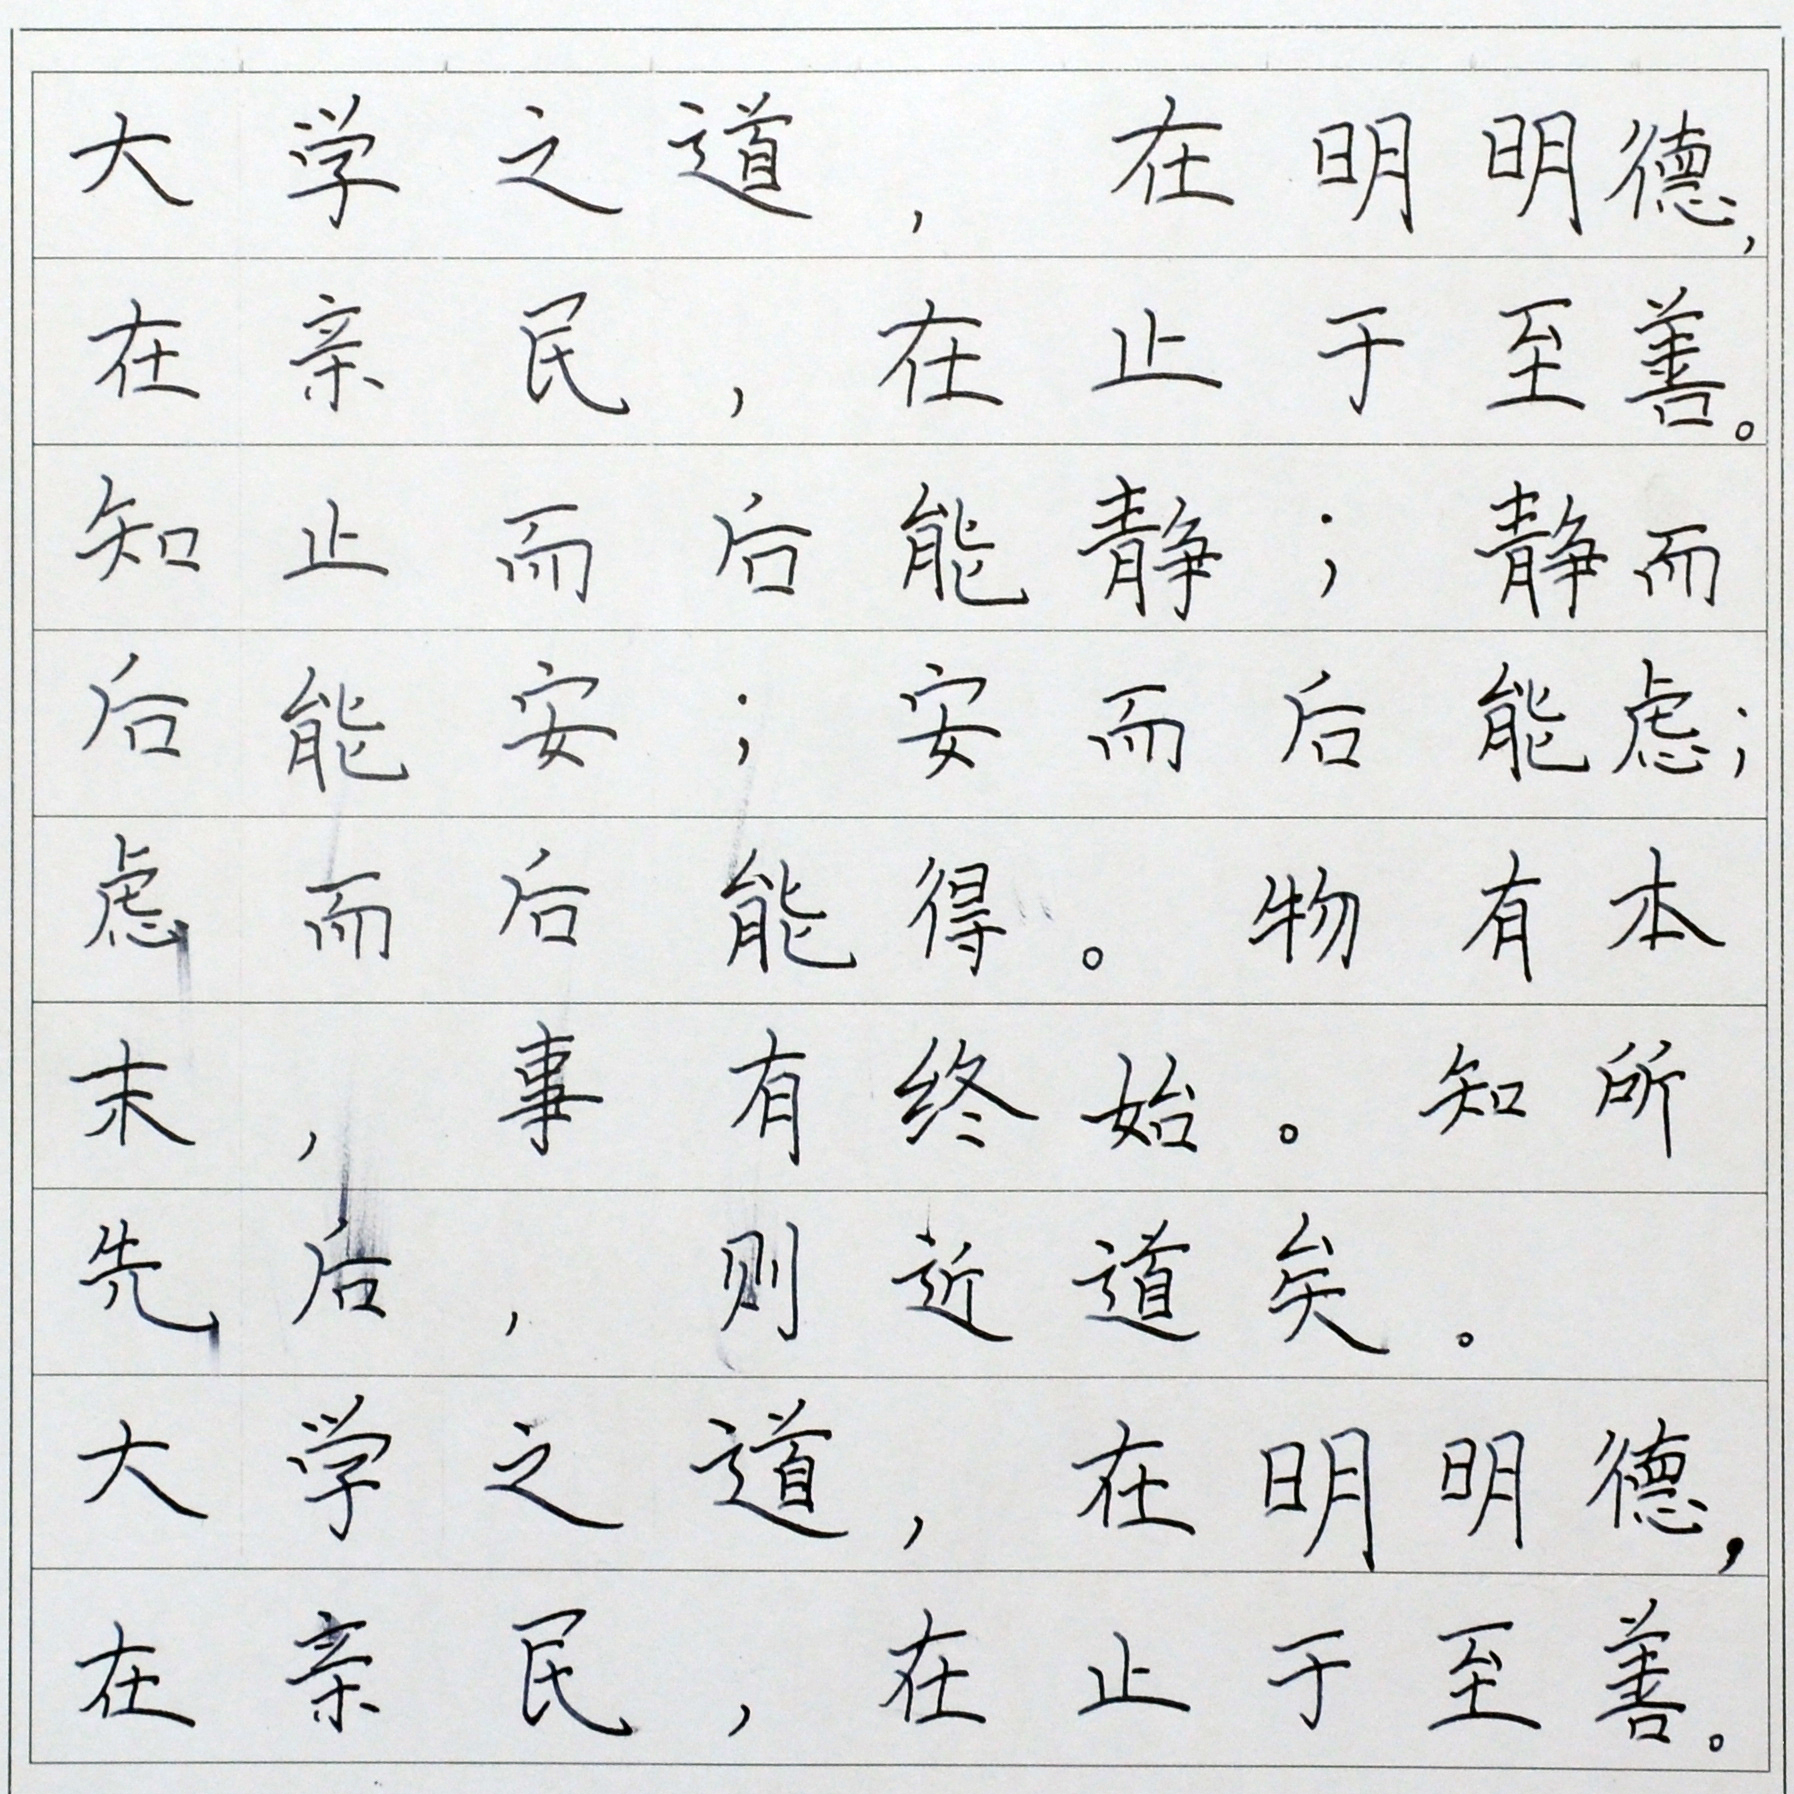 大学之道，在明明德，
在亲民，在止于至善。
知止而后能静；静而
后能安；安而后能虑；
虑而后能得。物有本
末，事有终始。知所
先后，则近道矣。
大学之道，在明明德，
在亲民，在止于至善。